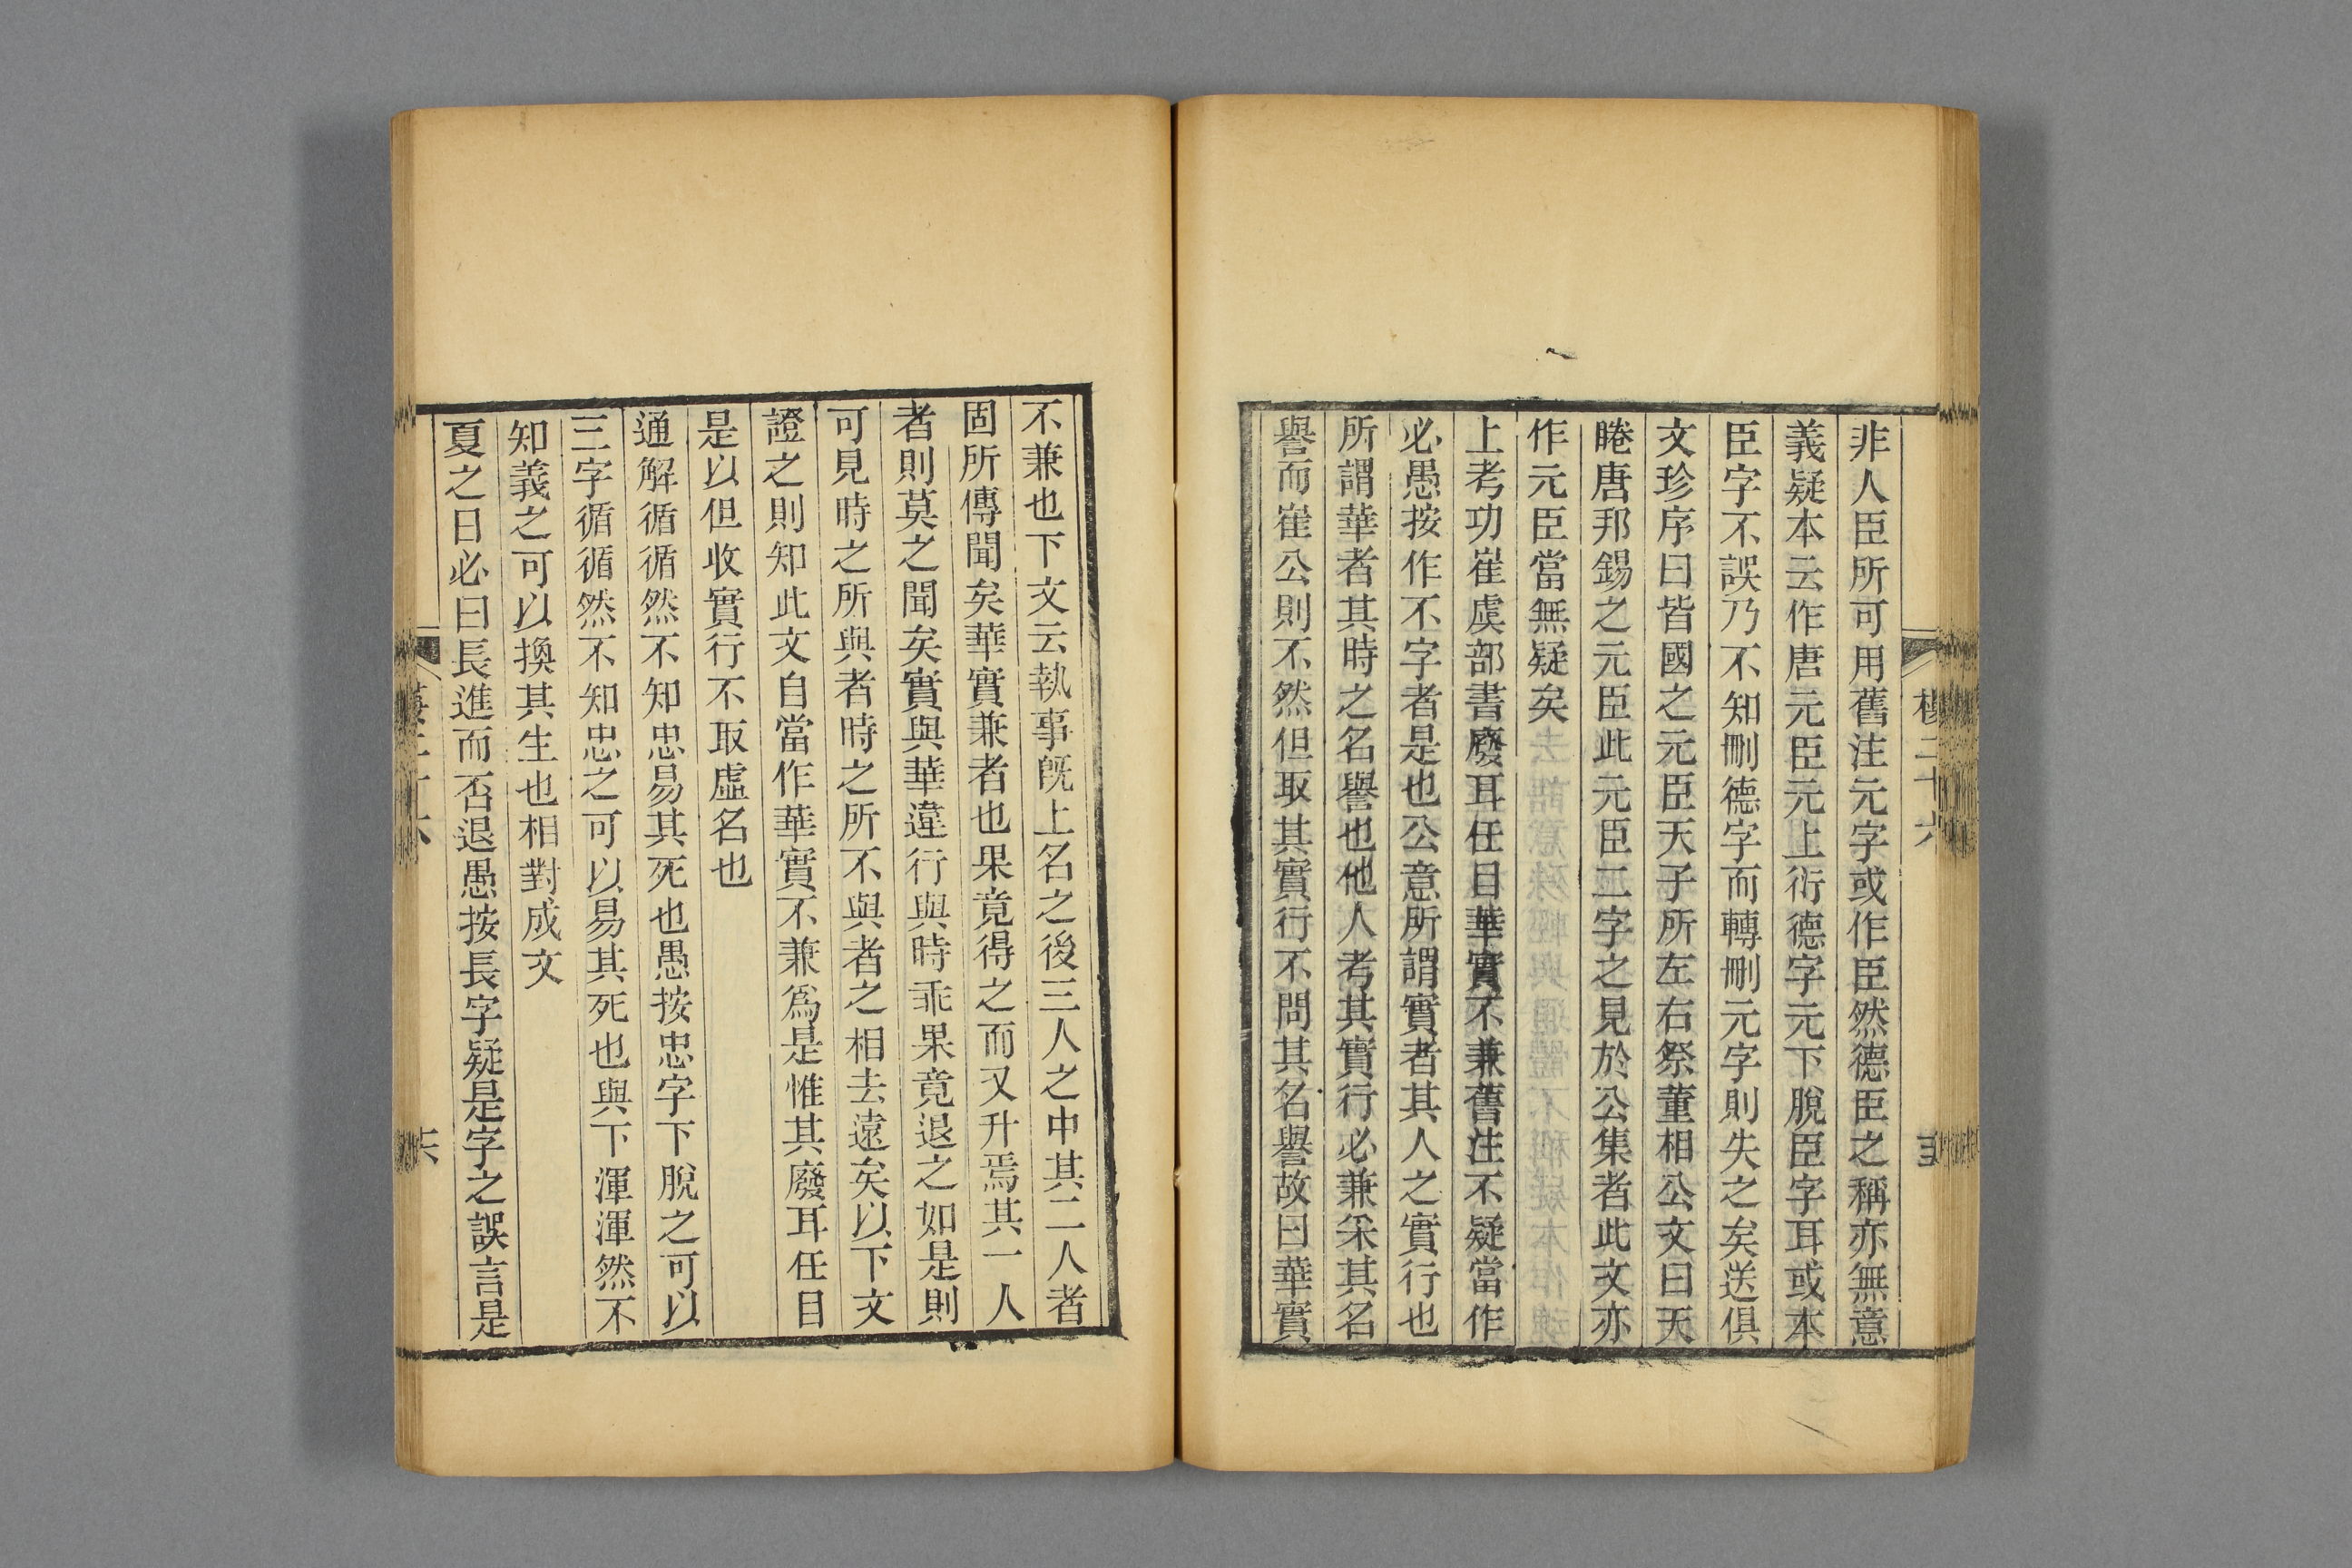 非人臣所可用舊注元字或作臣然德臣之稱亦無意
義疑本云作唐元臣元上衍德字元下脫臣字耳或本
臣字不誤乃不知刪德字而轉刪元字則失之矣送俱
文珍序曰皆國之元臣天子所左右祭董相公文曰天
睠唐邦錫之元臣此元臣二字之見於公集者此文亦
作元臣當無疑矣
上考功崔虞部書廢耳任目華實不兼舊注不疑當作
必愚按作不字者是也公意所謂實者其人之實行也
所謂華者其時之名譽也他人考其實行必兼采其名
譽而崔公則不然但取其實行不問其名譽故曰華實
不兼也下文云執事旣上名之後三人之中其二人者
固所傳聞矣華實兼者也果竟得之而又升焉其一人
者則莫之聞矣實與華違行與時乖果竟退之如是則
可見時之所與者時之所不與者之相去遠矣以下文
證之則知此文自當作華實不兼爲是惟其廢耳任目
是以但收實行不取虛名也
通解循循然不知忠易其死也愚按忠字下脫之可以
三字循循然不知忠之可以易其死也與下渾渾然不
知義之可以換其生也相對成文
夏之日必曰長進而否退愚按長字疑是字之誤言是